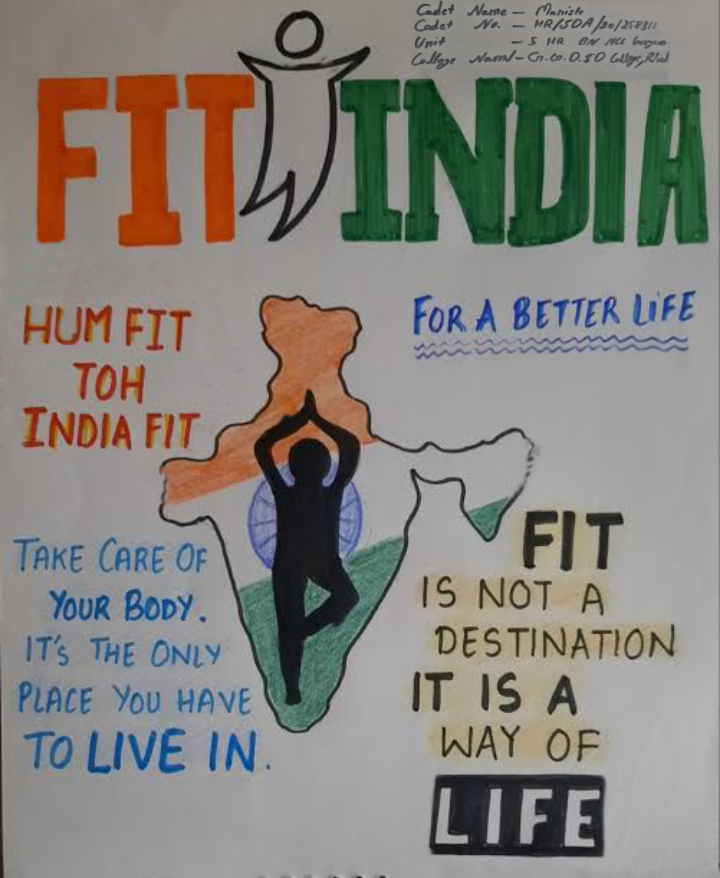 Cadet Name - Manish
Cadet No. - HR/SDA/20/258311
Unit - 5 HR BN NCC
College Name - G.G.D.SD College,
FIT INDIA
HUM FIT
TOH
INDIA FIT
FOR A BETTER LiFE
TAKE CARE OF
YOUR BODY.
IT'S THE ONLY
PLACE YOU HAVE
TO LIVE IN.
FIT
IS NOT A
DESTINATION
IT IS A
WAY OF
LIFE